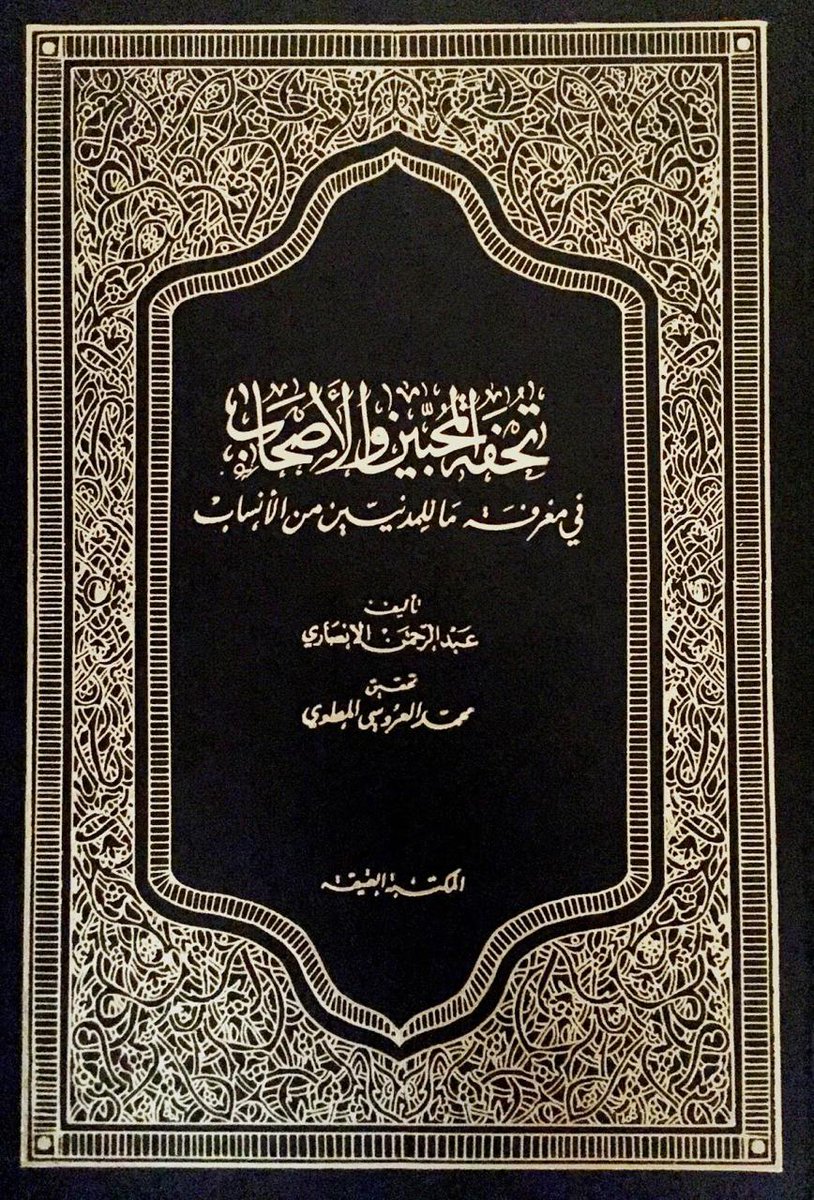 تحفة المحبين والأصحاب
في معرفة ما للمدنيين من الأنساب
تأليف
عبد الرحمن الانصاري
تحقيق
محمد العروسي المطوي
المكتبة العتيقة